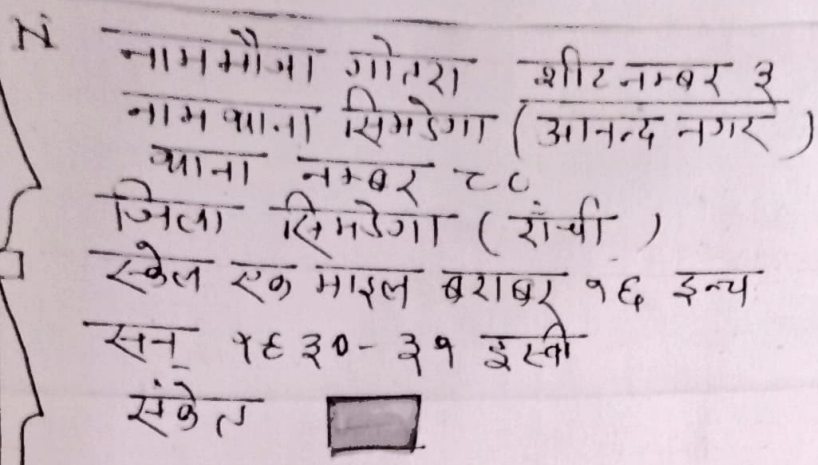 N
नाम मौजा गोतरा शीट नम्बर ३
नाम थाना सिमडेगा (आनन्द नगर)
थाना नम्बर ८८
जिला सिमडेगा (राँची)
स्केल एक माइल बराबर १६ इन्च
सन् १९३०-३१ इस्वी
संकेत